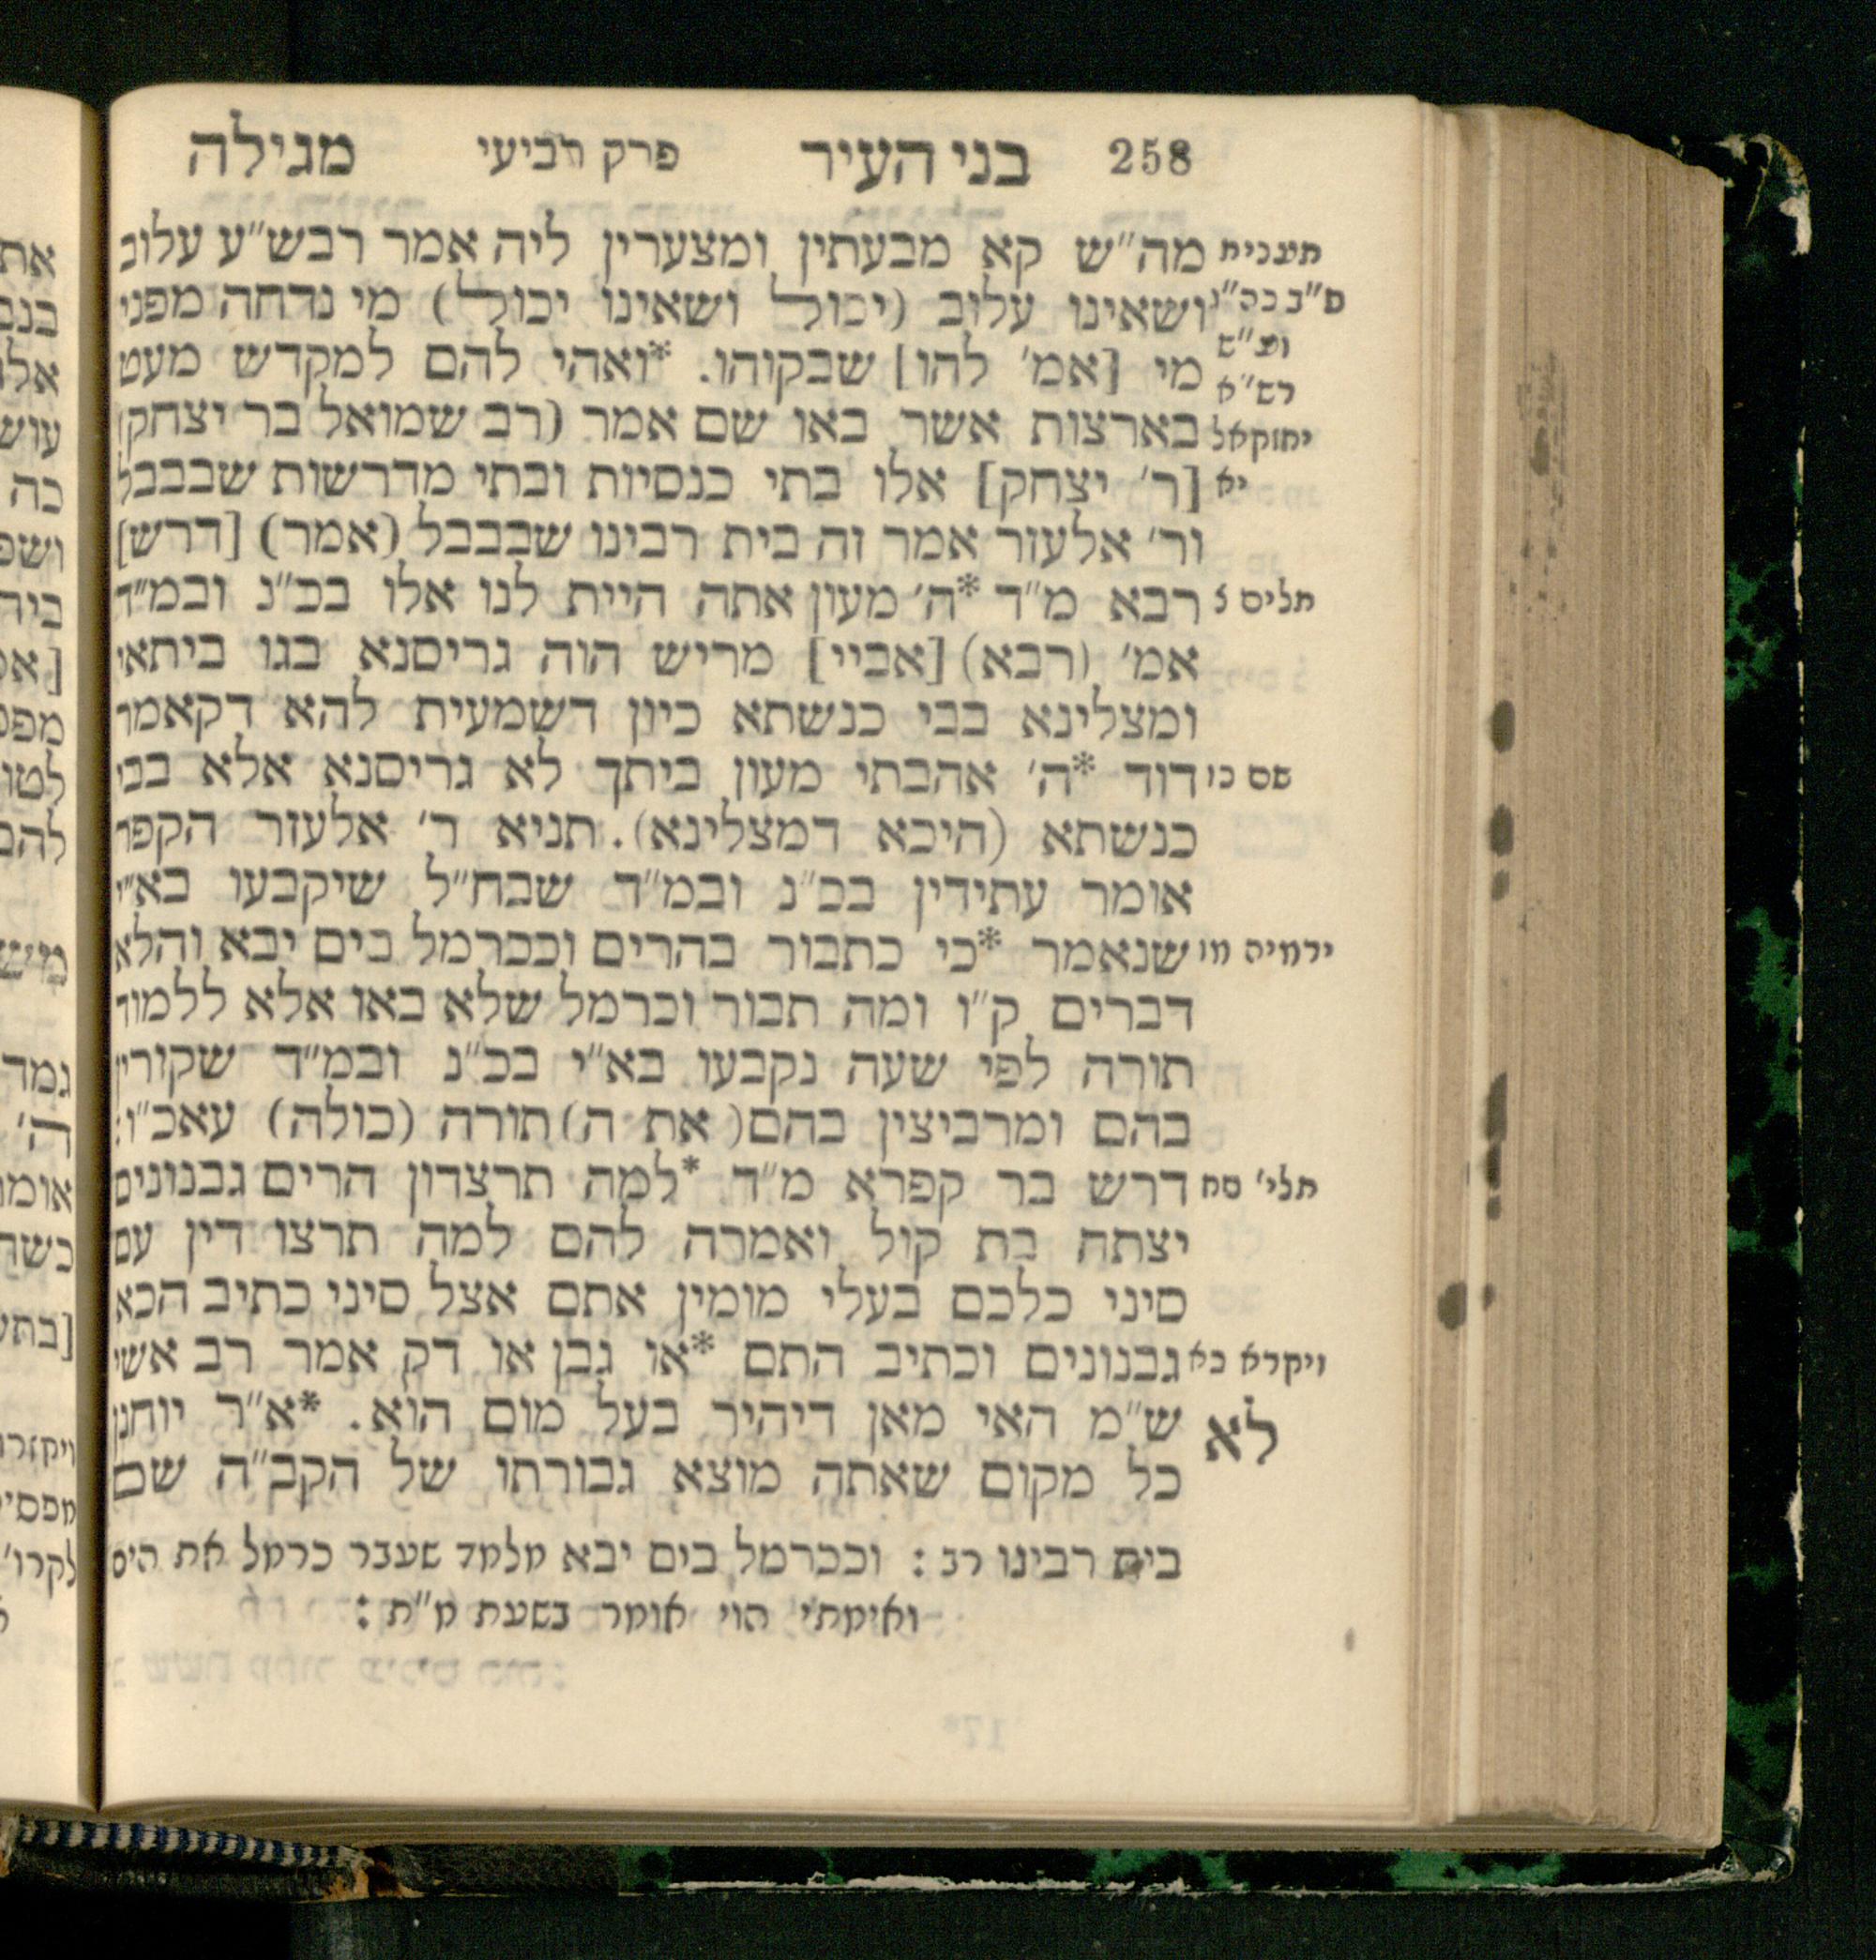 258 בני העיר פרק רביעי מגילה
תענית מה"ש קא מבעתין ומצערין ליה אמר רבש"ע עלוב
ושאינו עלוב (יכול ושאינו יכול) מי נדחה מפני
מי [אמ' להו] שבקוהו. *ואהי להם למקדש מעט
רש"א
יחזקאל בארצות אשר באו שם אמר (רב שמואל בר יצחק)
יא [ר' יצחק] אלו בתי כנסיות ובתי מדרשות שבבבל
ור' אלעזר אמר זה בית רבינו שבבבל (אמר) [דרש]
תלים צ רבא מ"ד *ה' מעון אתה היית לנו אלו בכ"נ ובמ"ד
אמ' (רבא) [אביי] מריש הוה גריסנא בגו ביתאי
ומצלינא בבי כנשתא כיון דשמעית להא דקאמר
שם כו דוד *ה' אהבתי מעון ביתך לא גריסנא אלא בבי
כנשתא (היכא דמצלינא). תניא ר' אלעזר הקפר
אומר עתידין בכ"נ ובמ"ד שבח"ל שיקבעו בא"י
ירמיה מו שנאמר *כי כתבור בהרים וככרמל בים יבא והלא
דברים ק"ו ומה תבור וכרמל שלא באו אלא ללמוד
תורה לפי שעה נקבעו בא"י בכ"נ ובמ"ד שקורין
בהם ומרביצין בהם (את ה) תורה (כולה) עאכ"ו:
תלי' סח דרש בר קפרא מ"ד *למה תרצדון הרים גבנונים
יצתה בת קול ואמרה להם למה תרצו דין עם
סיני כלכם בעלי מומין אתם אצל סיני כתיב הכא
ויקרא כא גבנונים וכתיב התם *או גבן או דק אמר רב אשי
לא ש"מ האי מאן דיהיר בעל מום הוא. *א"ר יוחנן
כל מקום שאתה מוצא גבורתו של הקב"ה שם
בית רבינו רב: וככרמל בים יבא מלמד שעבר כרמל את הים
ואימתי הוי אומר בשעת מ"ת: